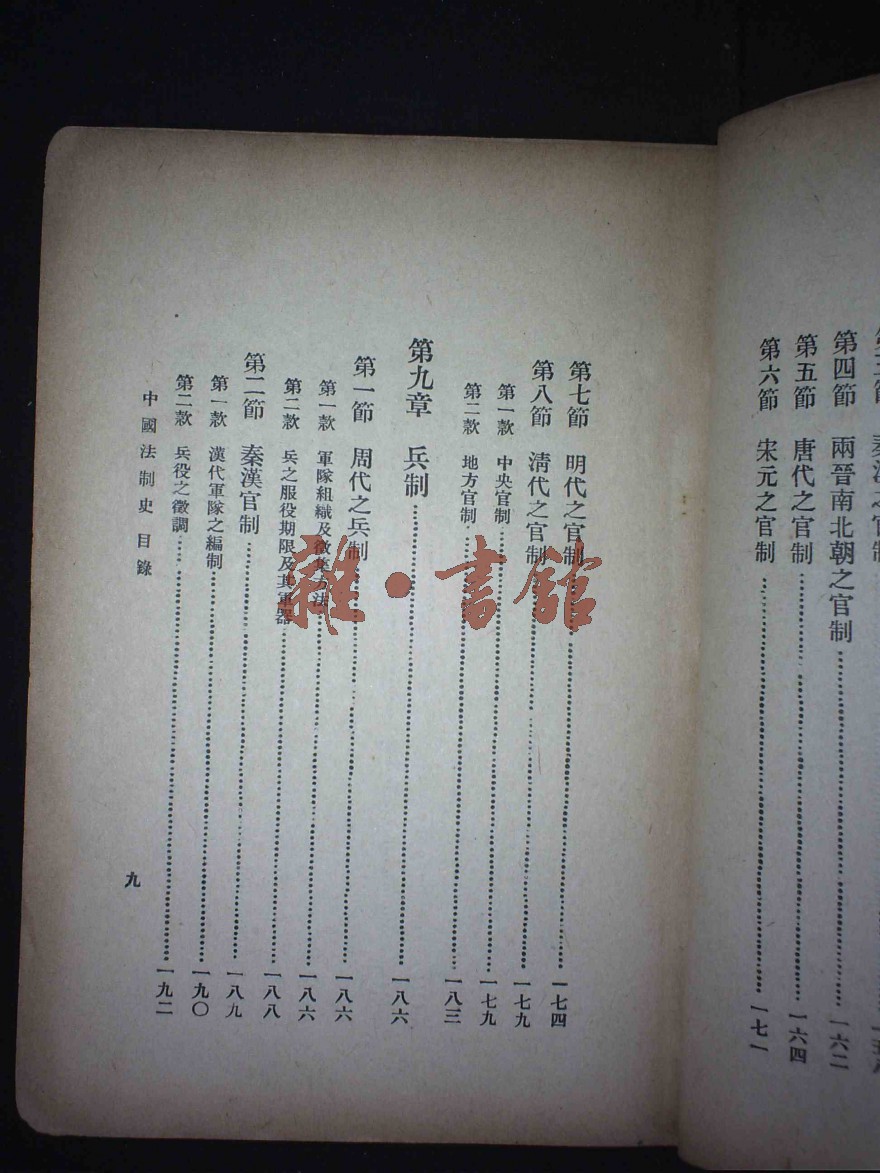 第四節 兩晉南北朝之官制……一六二
第五節 唐代之官制……一六四
第六節 宋元之官制……一七一
第七節 明代之官制……一七四
第八節 淸代之官制……一七九
第一款 中央官制……一七九
第二款 地方官制……一八三
第九章 兵制……一八六
第一節 周代之兵制……一八六
第一款 軍隊組織及徵集方法……一八六
第二款 兵之服役期限及其軍器……一八八
第二節 秦漢官制……一八九
第一款 漢代軍隊之編制……一九〇
第二款 兵役之徵調……一九二
中國法制史 目錄
九
雜·書館